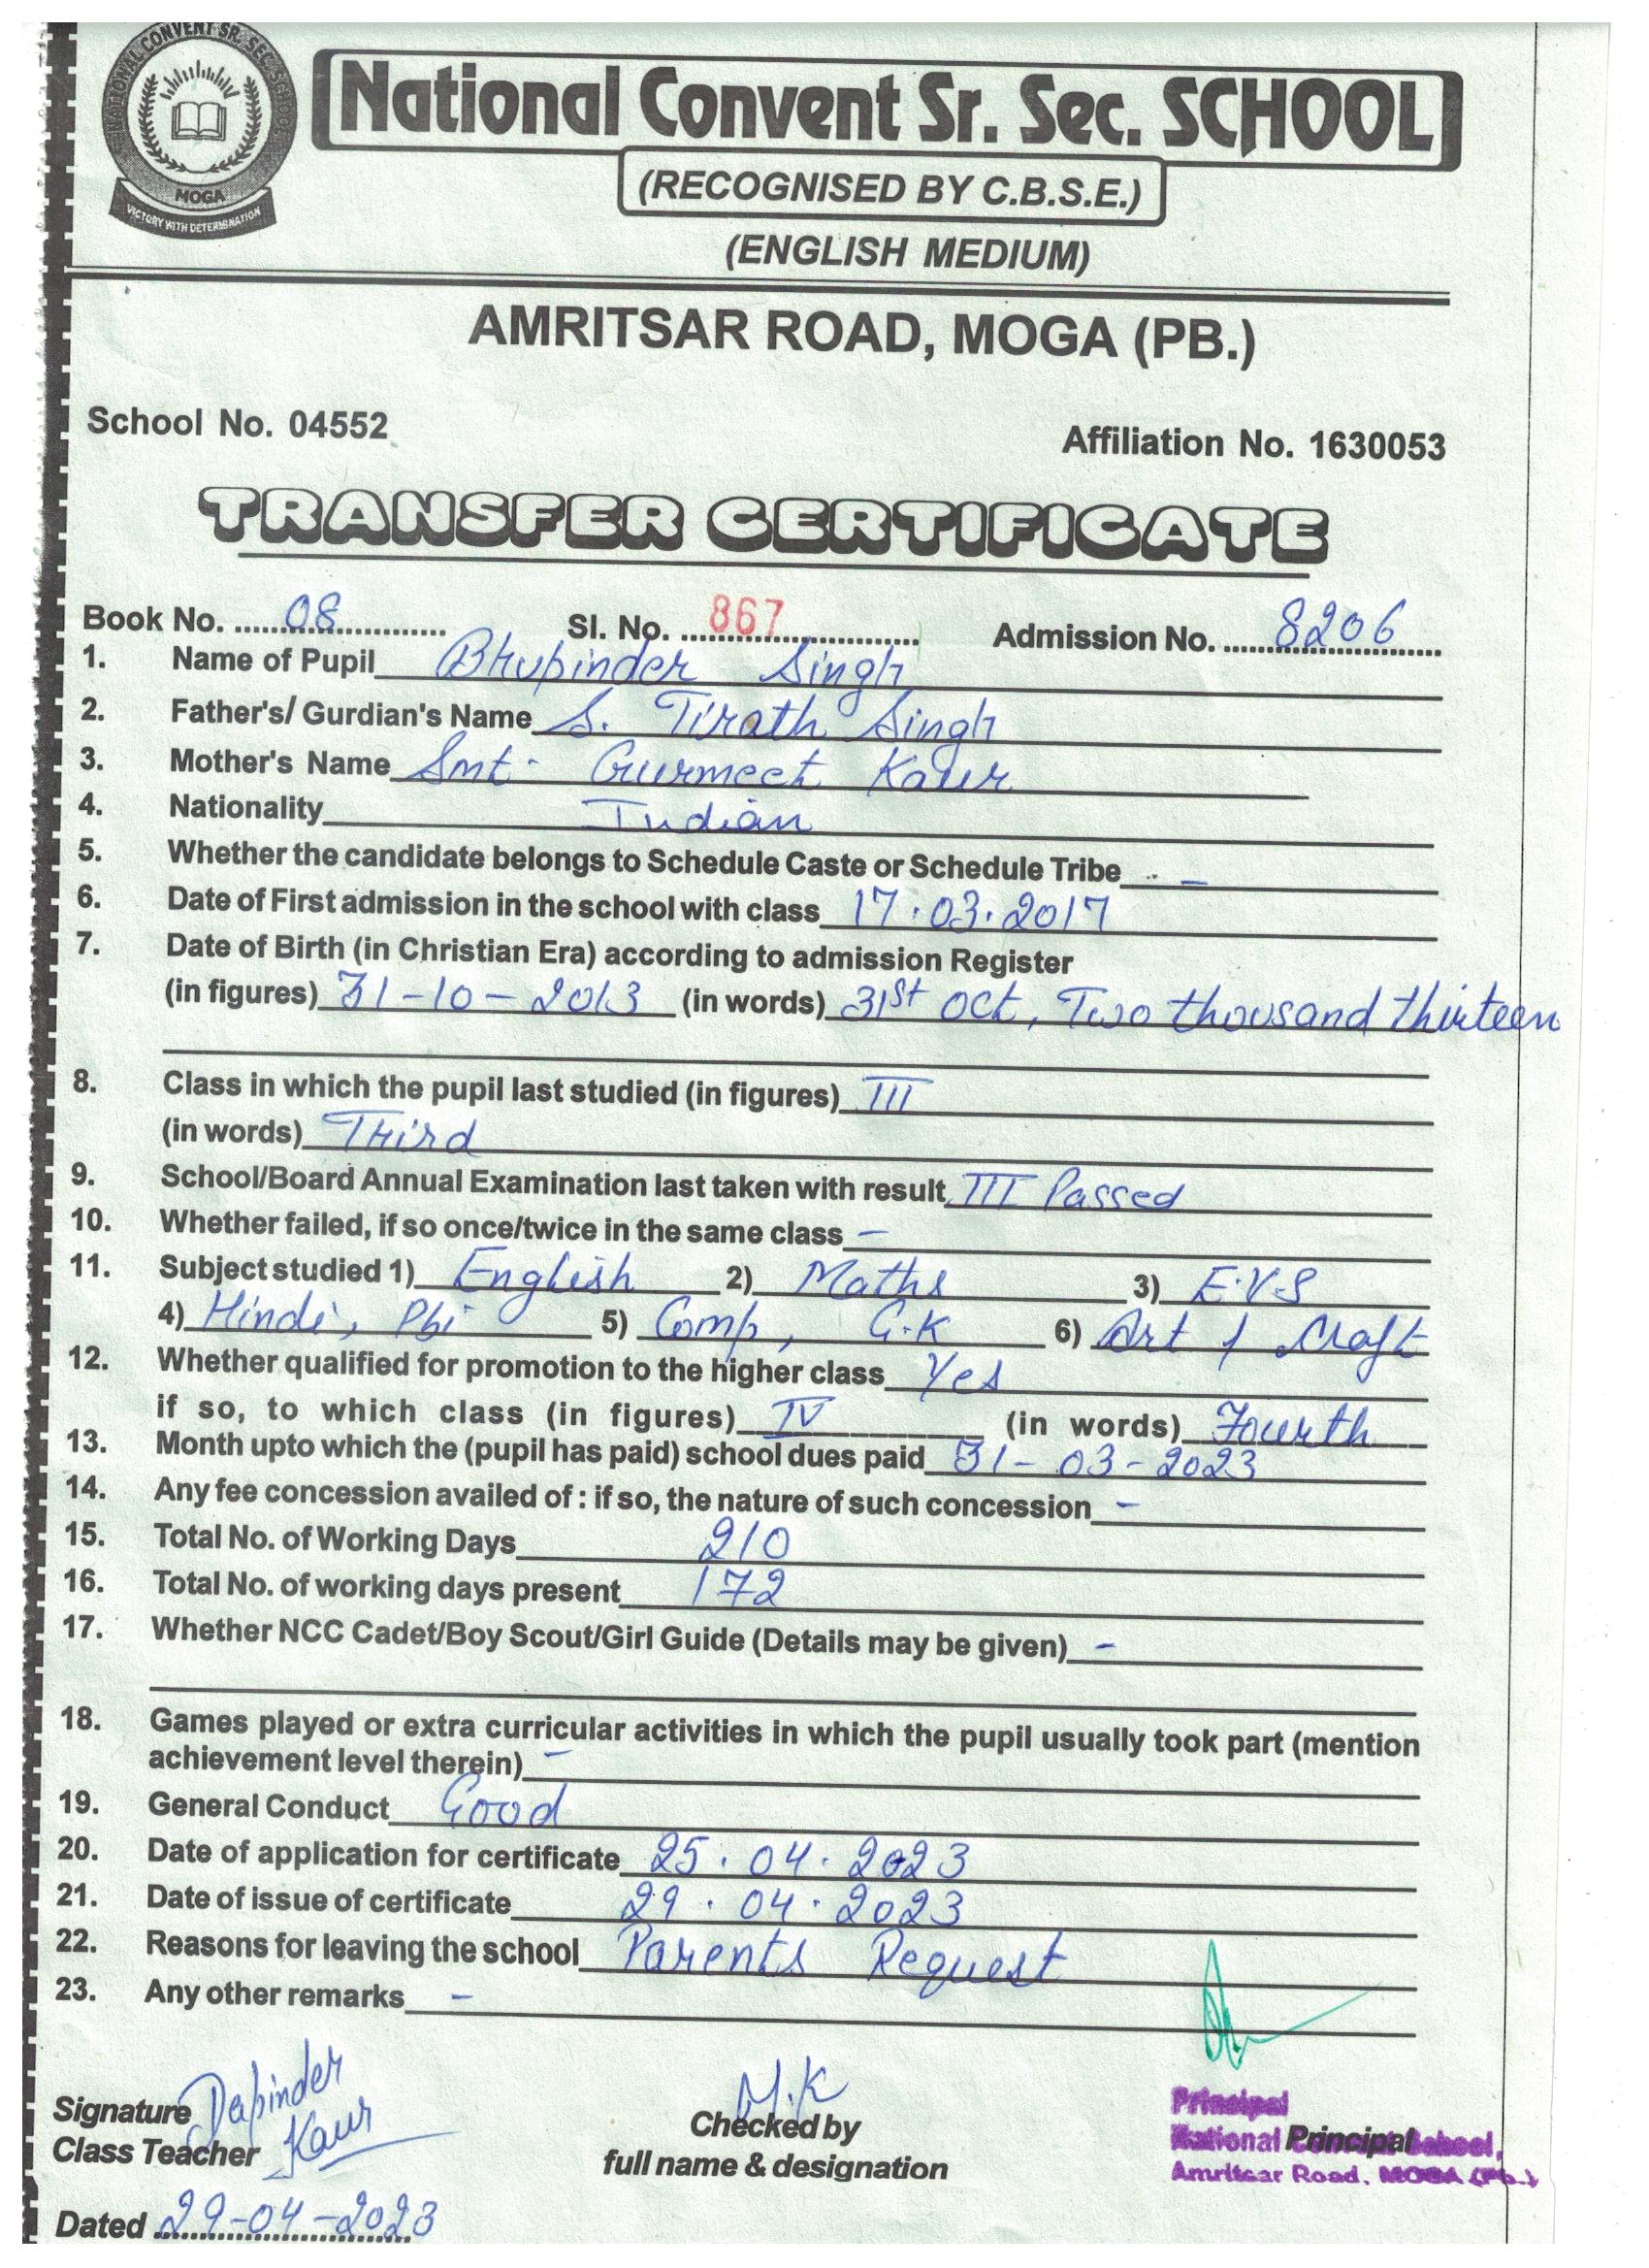 NATIONAL CONVENT SR. SEC. SCHOOL
MOGA
VICTORY WITH DETERMINATION
National Convent Sr. Sec. SCHOOL
(RECOGNISED BY C.B.S.E.)
(ENGLISH MEDIUM)
AMRITSAR ROAD, MOGA (PB.)
School No. 04552 Affiliation No. 1630053
TRANSFER CERTIFICATE
Book No. 08 Sl. No. 867 Admission No. 8206
1. Name of Pupil Bhupinder Singh
2. Father's/ Gurdian's Name S. Tirath Singh
3. Mother's Name Smt. Gurmeet Kaur
4. Nationality Indian
5. Whether the candidate belongs to Schedule Caste or Schedule Tribe -
6. Date of First admission in the school with class 17.03.2017
7. Date of Birth (in Christian Era) according to admission Register
(in figures) 31-10-2013 (in words) 31st Oct, Two thousand thirteen
8. Class in which the pupil last studied (in figures) III
(in words) Third
9. School/Board Annual Examination last taken with result III Passed
10. Whether failed, if so once/twice in the same class -
11. Subject studied 1) English 2) Maths 3) E.V.S
4) Hindi, Pbi 5) Comp, G.K 6) Art / Craft
12. Whether qualified for promotion to the higher class Yes
if so, to which class (in figures) IV (in words) Fourth
13. Month upto which the (pupil has paid) school dues paid 31-03-2023
14. Any fee concession availed of : if so, the nature of such concession -
15. Total No. of Working Days 210
16. Total No. of working days present 172
17. Whether NCC Cadet/Boy Scout/Girl Guide (Details may be given) -
18. Games played or extra curricular activities in which the pupil usually took part (mention
achievement level therein) -
19. General Conduct Good
20. Date of application for certificate 25.04.2023
21. Date of issue of certificate 29.04.2023
22. Reasons for leaving the school Parents Request
23. Any other remarks -
Signature Dapinder
Class Teacher Kaur
M.K
Checked by
full name & designation
Principal
National School,
Principal
Amritsar Road, MOGA (Pb.)
Dated 29-04-2023